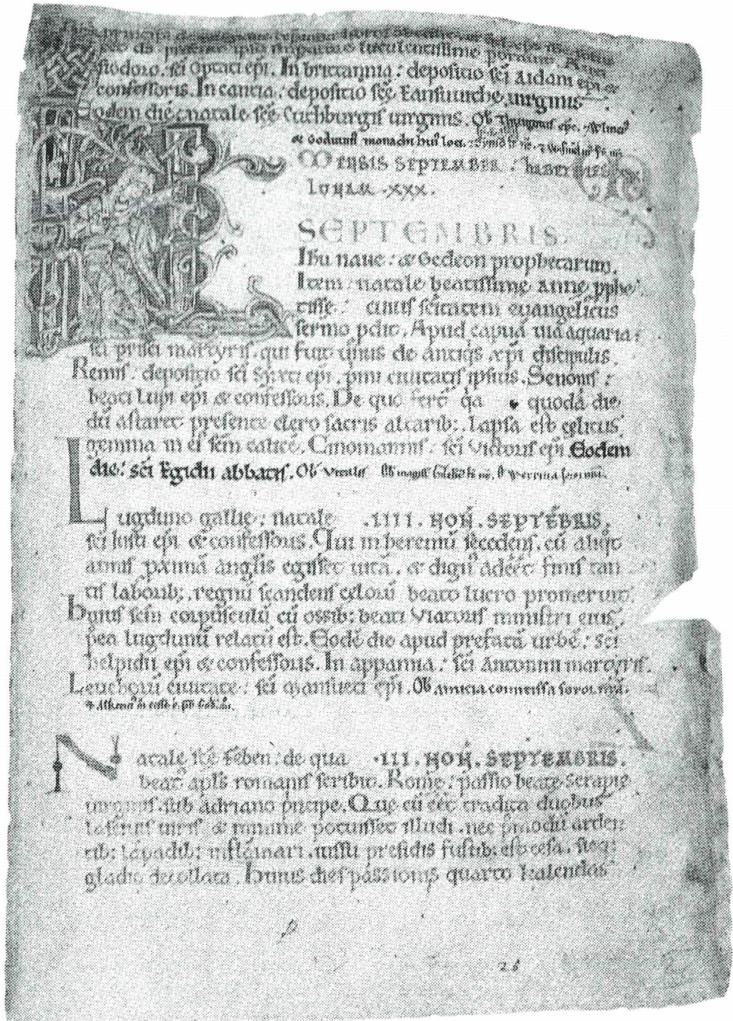 stodoro. sci Optati epi. In brittannia: depositio sci Aidani epi &
confessoris. In cantia: depositio sce Eansuuithe uirginis
Eodem die: natale sce Cuthburgis uirginis. Ob
& Goduini monachi hui loci.
MENSIS SEPTEMBER: HABET DIES XXX
LUNAM .XXX.
SEPTEMBRIS.
Ihu naue: & Gedeon prophetarum.
Item: natale beatissime Anne pphe
tisse: cuius scitatem euangelicus
sermo pdit. Apud capua uia aquaria:
sci prisci martyris. qui fuit unus de antiqs xpi discipulis.
Remis: depositio sci Sixti epi. pmi ciuitatis ipsius. Senonis:
beati Lupi epi & confessoris. De quo fert qa quoda die
du astaret presente clero sacris altarib: Lapsa est celitus
gemma in ei scm calice. Cinomannis: sci Victoris epi Eodem
die: sci Egidii abbatis. Ob Vitalis
Lugduno gallie: natale .IIII. NON. SEPTEBRIS.
sci Iusti epi & confessoris. Qui in heremu secedens. cu aliqt
annis pxima anglis egisset uita. & digu adeet finis tan
tis laborib: regnu scandens celoru beato lucro promeruit
huius scm corpusculu cu ossib: beati Viatoris ministri eius.
pea lugdunu relatu est. Eode die apud prefata urbe: sci
helpidii epi & confessoris. In appanna: sci Antonini martyris.
Leuchoru ciuitate: sci Mansueti epi. Ob Amicia conuersa soror
Natale sce Feben: de qua .III. NON. SEPTEMBRIS.
beat apls romanis scribit. Rome: passio beate Serapie
uirginis. sub Adriano pncipe. Que cu eet tradita duobus
lasciuis uiris & minime potuisset illudi. nec pmodu arden
tib: lapadib: inflamari. iussu presidis fustib: est cesa.
gladio decollata. huius dies passionis quarto kalendas
26